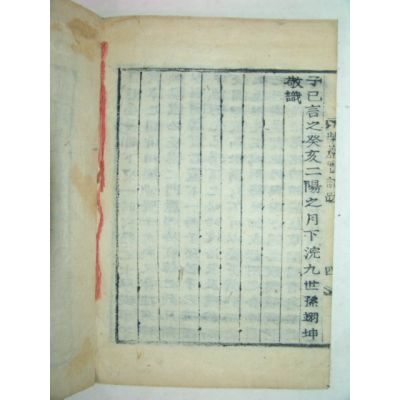 子已言之癸亥二陽之月下浣九世孫翊坤
敬識